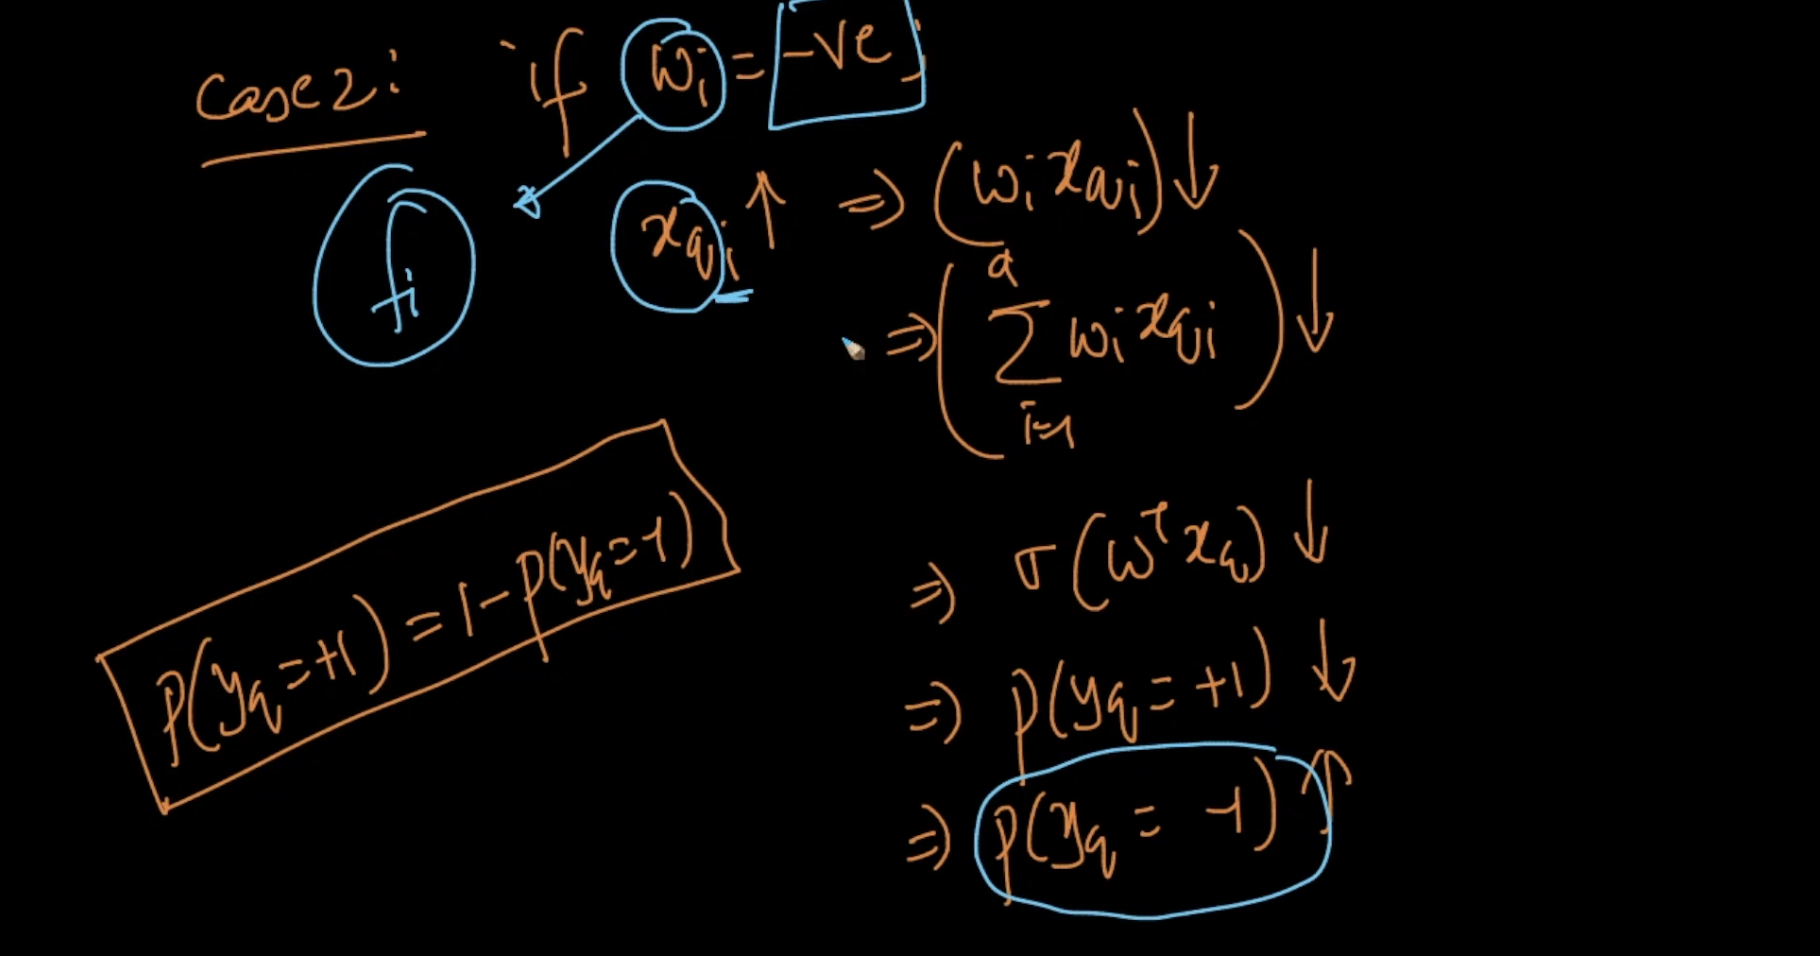 Case 2: if wᵢ = -ve;
fᵢ x_qi ↑ ⇒ (wᵢ x_qi) ↓
⇒ (∑_{i=1}^{d} wᵢ x_qi) ↓
⇒ σ(wᵀx_q) ↓
P(y_q = +1) = 1 - P(y_q = -1)
⇒ P(y_q = +1) ↓
⇒ P(y_q = -1) ↑